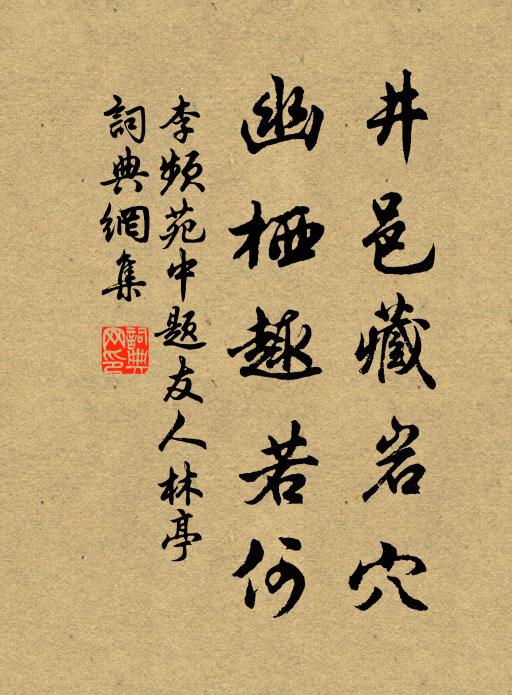 井邑藏岩穴
幽栖趣若何
李频苑中题友人林亭
詞典網集
詞典網印